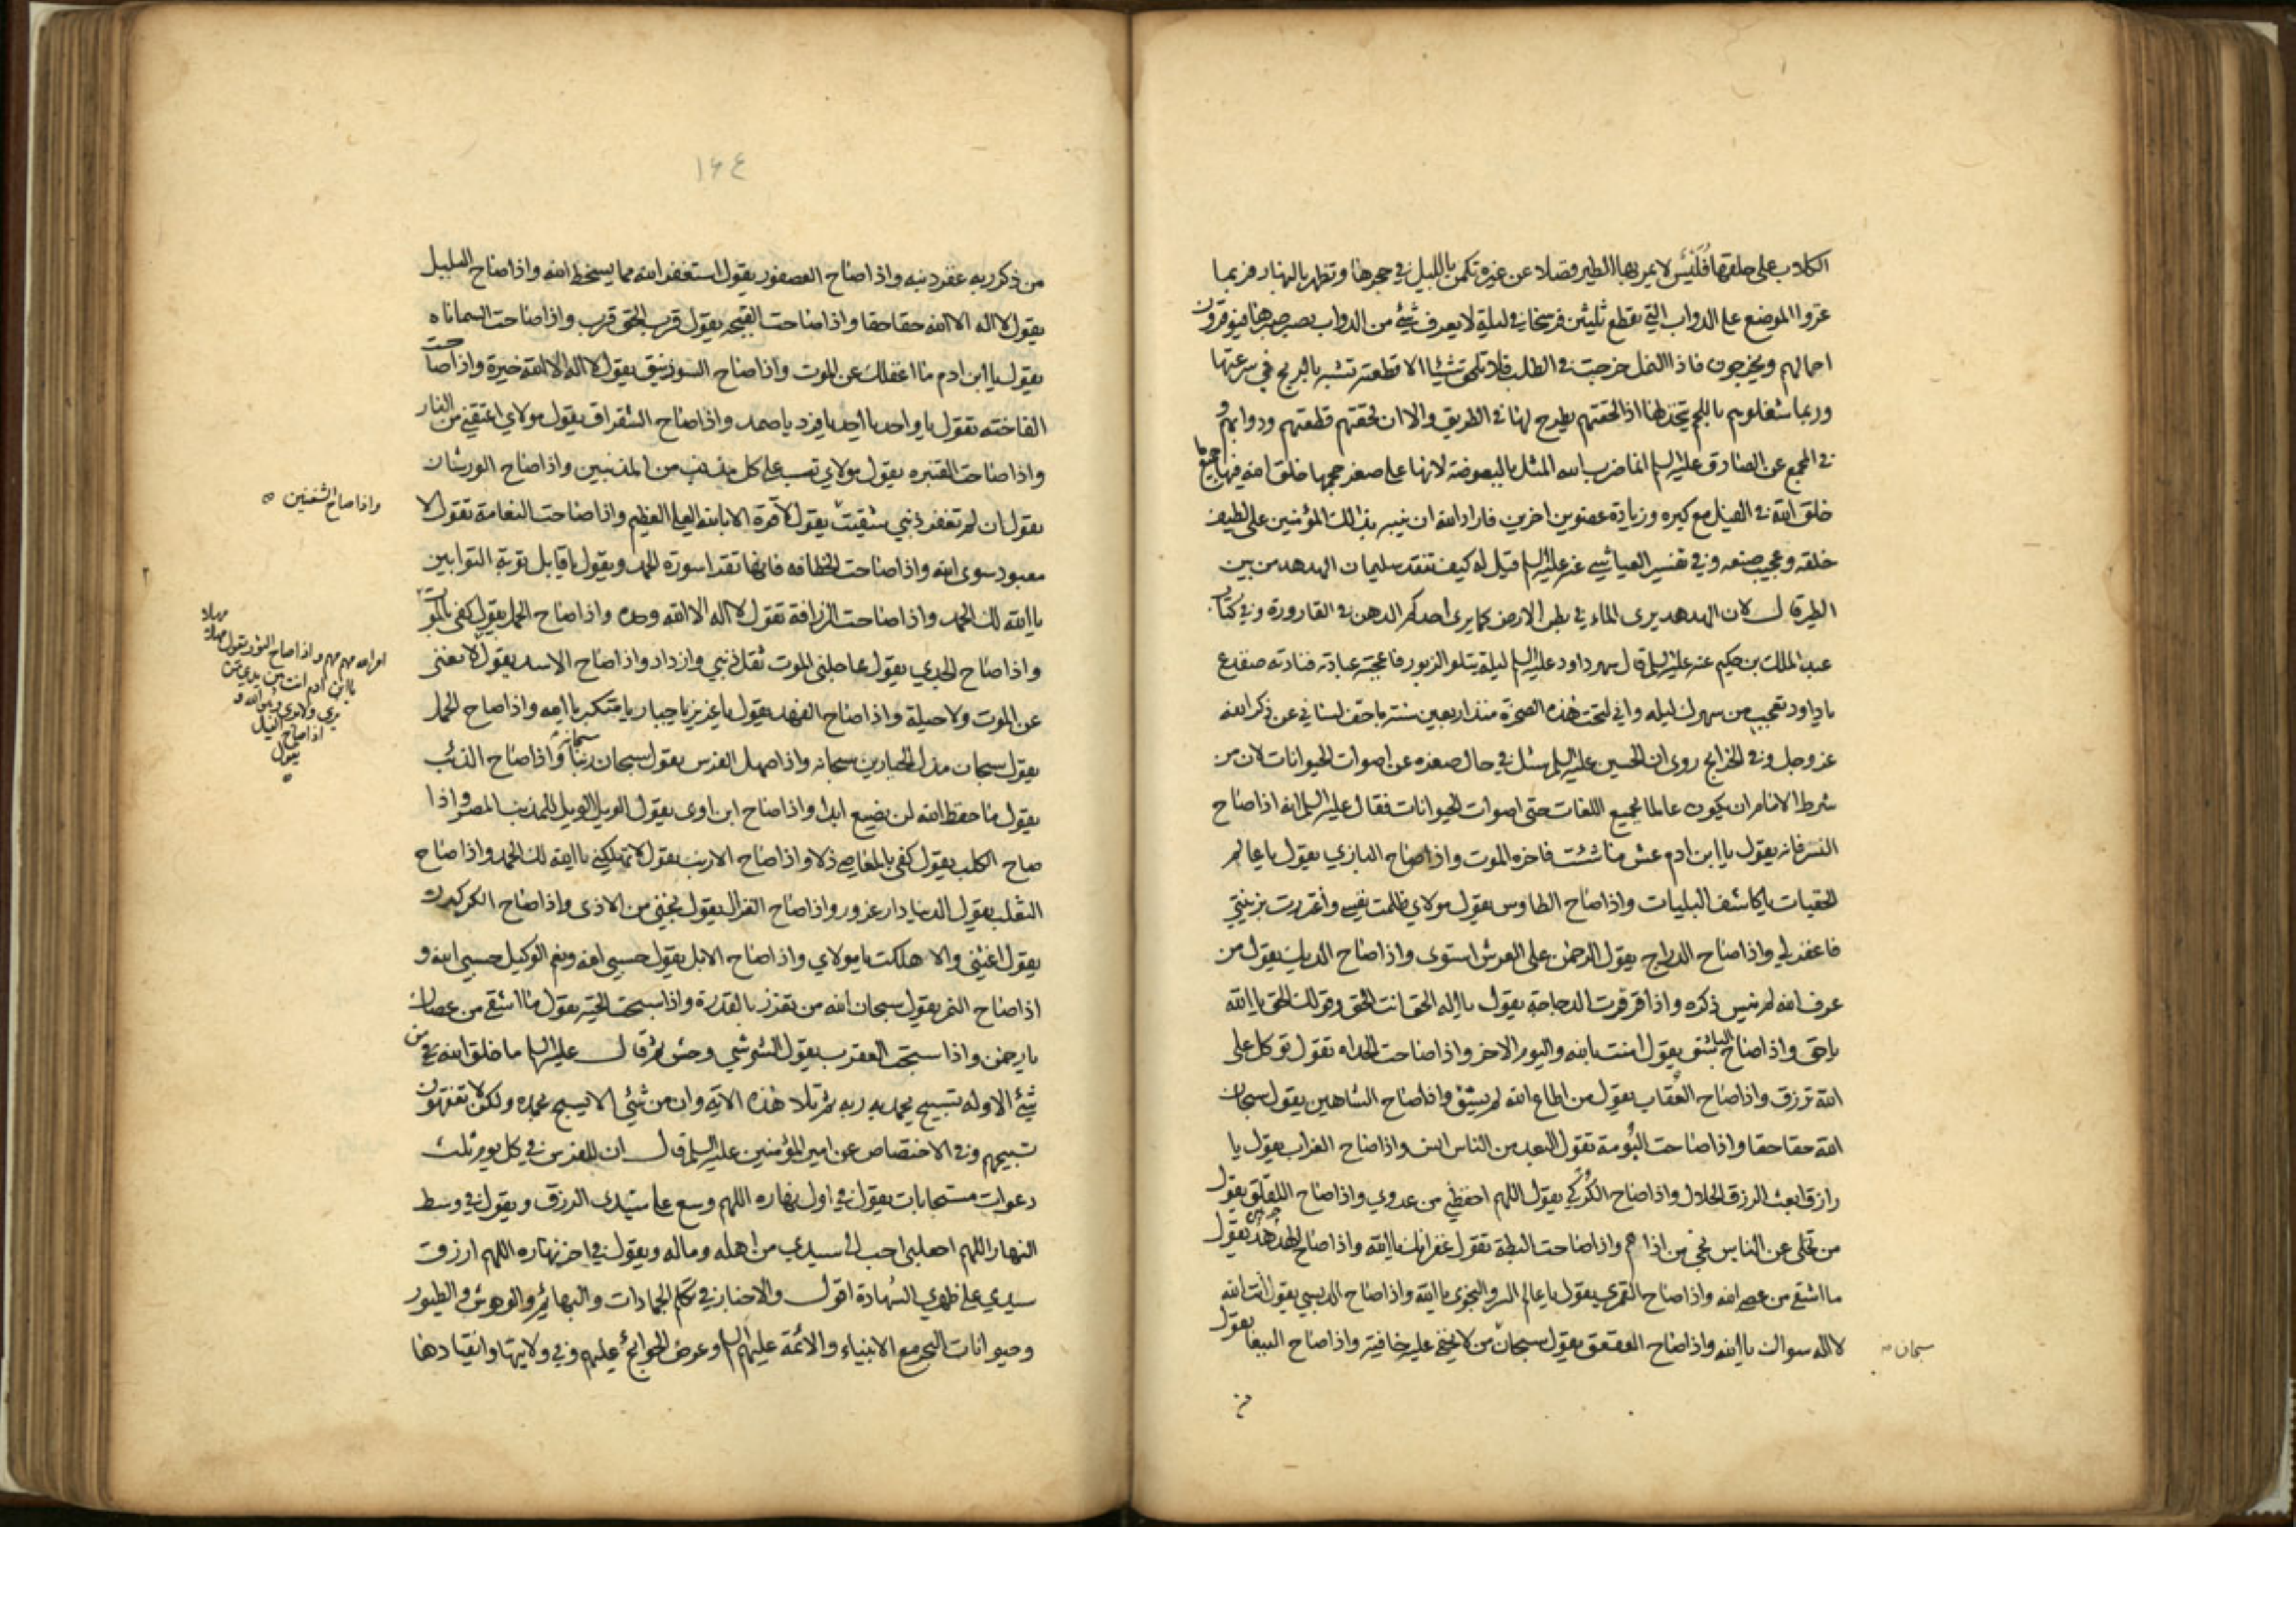 الكلاب على خلقها فليس لا يمر بها الطير فضلا عن غيره تكمن بالليل في جحرها وتظهر بالنهار فربما
غزوا الموضع على الدواب التي تقطع ثلثين فرسخا في ليلة لا يعرف شيء من الدواب يصبر صبرها فيوقرون
احمالهم ويخرجون فاذا النمل خرجت في الطلب فلا تلحق شيئا الا قطعته تشبه بالريح في سرعتها
وربما شغلوهم باللحم يتخذ لها اذا لحقتهم يطرح لها في الطريق والا ان لحقتهم قطعتهم ودوابهم و
في المجمع عن الصادق عليه السلم انما ضرب الله المثل بالبعوضة لانها على صغر حجمها خلق الله فيها جميع ما
خلق الله في الفيل مع كبره وزيادة عضوين اخرين فاراد الله ان ينبه بذلك المؤمنين على لطيف
خلقه وعجيب صنعه وفي تفسير العياشي عنه عليه السلم قيل له كيف تفقد سليمان الهدهد من بين
الطير قال لان الهدهد يرى الماء في بطن الارض كما يرى احدكم الدهن في القارورة وفي كتاب
عبد الملك بن حكيم عنه عليه السلم قال سهر داود عليه السلم ليلة يتلو الزبور فاعجبته عبادته فنادته ضفدع
يا داود تعجب من سهرك ليله واني لتحت هذه الصخرة منذ اربعين سنة ما جف لساني عن ذكر الله
عز وجل وفي الخرايج روى ان الحسين عليه السلم سئل في حال صغره عن اصوات الحيوانات لان من
شرط الامام ان يكون عالما بجميع اللغات حتى اصوات الحيوانات فقال عليه السلم انه اذا صاح
النسر فانه يقول يا ابن ادم عش ما شئت فاخره الموت واذا صاح البازي يقول يا عالم
الخفيات يا كاشف البليات واذا صاح الطاوس يقول مولاي ظلمت نفسي واغتررت بزينتي
فاغفر لي واذا صاح الدراج يقول الرحمن على العرش استوى واذا صاح الديك يقول من
عرف الله لم ينس ذكره واذا قرقرت الدجاجة يقول يا اله الحق انت الحق وقولك الحق يا الله
يا حق واذا صاح الباشق يقول امنت بالله واليوم الاخر واذا صاحت الحداه تقول توكل على
الله ترزق واذا صاح العقاب يقول من اطاع الله لم يشق واذا صاح الشاهين يقول سبحان
الله حقا حقا واذا صاحت البومة تقول البعد من الناس انس واذا صاح الغراب يقول يا
رازق ابعث الرزق الحلال واذا صاح الكركي يقول اللهم احفظني من عدوي واذا صاح اللقلق يقول
من تخلى عن الناس نجي من اذاهم واذا صاحت البطة تقول غفرانك يا الله واذا صاح الهدهد يقول
ما اشقى من عصى الله واذا صاح القمري يقول يا عالم السر والنجوى يا الله واذا صاح الدبسي يقول انت الله
لا اله سواك يا الله واذا صاح العقعق يقول سبحان من لا يخفى عليه خافية واذا صاح الببغا يقول
سبحان
من
١٦٤
من ذكر ربه غفر ذنبه واذا صاح العصفور يقول استغفر الله مما يسخط الله واذا صاح البلبل
يقول لا اله الا الله حقا حقا واذا صاحت القبجه يقول قرب الحق قرب واذا صاحت السماناه
يقول يا ابن ادم ما اغفلك عن الموت واذا صاح السوذنيق يقول لا اله الا الله خيرة واذا صاحت
الفاخته تقول يا واحد يا احد يا فرد يا صمد واذا صاح الشقراق يقول مولاي اعتقني من النار
واذا صاحت القنبره يقول مولاي تب على كل مذنب من المذنبين واذا صاح الورشان
يقول ان لم تغفر ذنبي شقيت يقول لا قوة الا بالله العلي العظيم واذا صاحت النعامة تقول لا
معبود سوى الله واذا صاحت الخطافه فانها تقرا سورة الحمد ويقول يا قابل توبة التوابين
يا الله لك الحمد واذا صاحت الزرافة تقول لا اله الا الله وحده واذا صاح الحمل يقول كفى بالموت
واذا صاح الجدي يقول عاجلني الموت ثقل ذنبي وازداد واذا صاح الاسد يقول
عن الموت ولا حيلة واذا صاح الفهد يقول يا عزيز يا جبار يا متكبر يا الله واذا صاح الجمل
يقول سبحان مذل الجبارين سبحانه واذا صهل الفرس يقول سبحان ربنا سبحانه واذا صاح الذئب
يقول ما حفظ الله لن يضيع ابدا واذا صاح ابن اوى يقول الويل الويل للمذنب المصر واذا
صاح الكلب يقول كفى بالمعاصي ذلا واذا صاح الارنب يقول لا تهلكني يا الله لك الحمد واذا صاح
الثعلب يقول الدنيا دار غرور واذا صاح الغزال يقول نجني من الاذى واذا صاح الكركدن
يقول اغثني والا هلكت يا مولاي واذا صاح الابل يقول حسبي الله ونعم الوكيل حسبي الله و
اذا صاح النمر يقول سبحان الله من تعزز بالقدرة واذا سبحت الحية يقول ما اشقى من عصاك
يا رحمن واذا سبحت العقرب يقول الشر شيء وحش ثم قال عليه السلم ما خلق الله من
شيء الا وله تسبيح يحمد به ربه ثم تلا هذه الاية وان من شيء الا يسبح بحمده ولكن لا تفقهون
تسبيحهم وفي الاختصاص عن امير المؤمنين عليه السلم قال ان للفرس في كل يوم ثلث
دعوات مستجابات يقول في اول نهاره اللهم وسع على سيدي الرزق ويقول في وسط
النهار اللهم اجعلني احب الى سيدي من اهله وماله ويقول في اخر نهاره اللهم ارزق
سيدي على ظهري الشهادة اقول والاخبار في تكلم الجمادات والبهائم والوحوش والطيور
وحيوانات البحر مع الانبياء والائمة عليهم السلم وعرض الحوائج عليهم وفي ولايتها وانقيادها
واذا صاح الشفنين
مهلا
مهم مهم واذا صاح الثور يقول مهلا
يا ابن ادم انت بين يدي من
يرى ولا يرى وهو الله و
اذا صاح الفيل
يقول